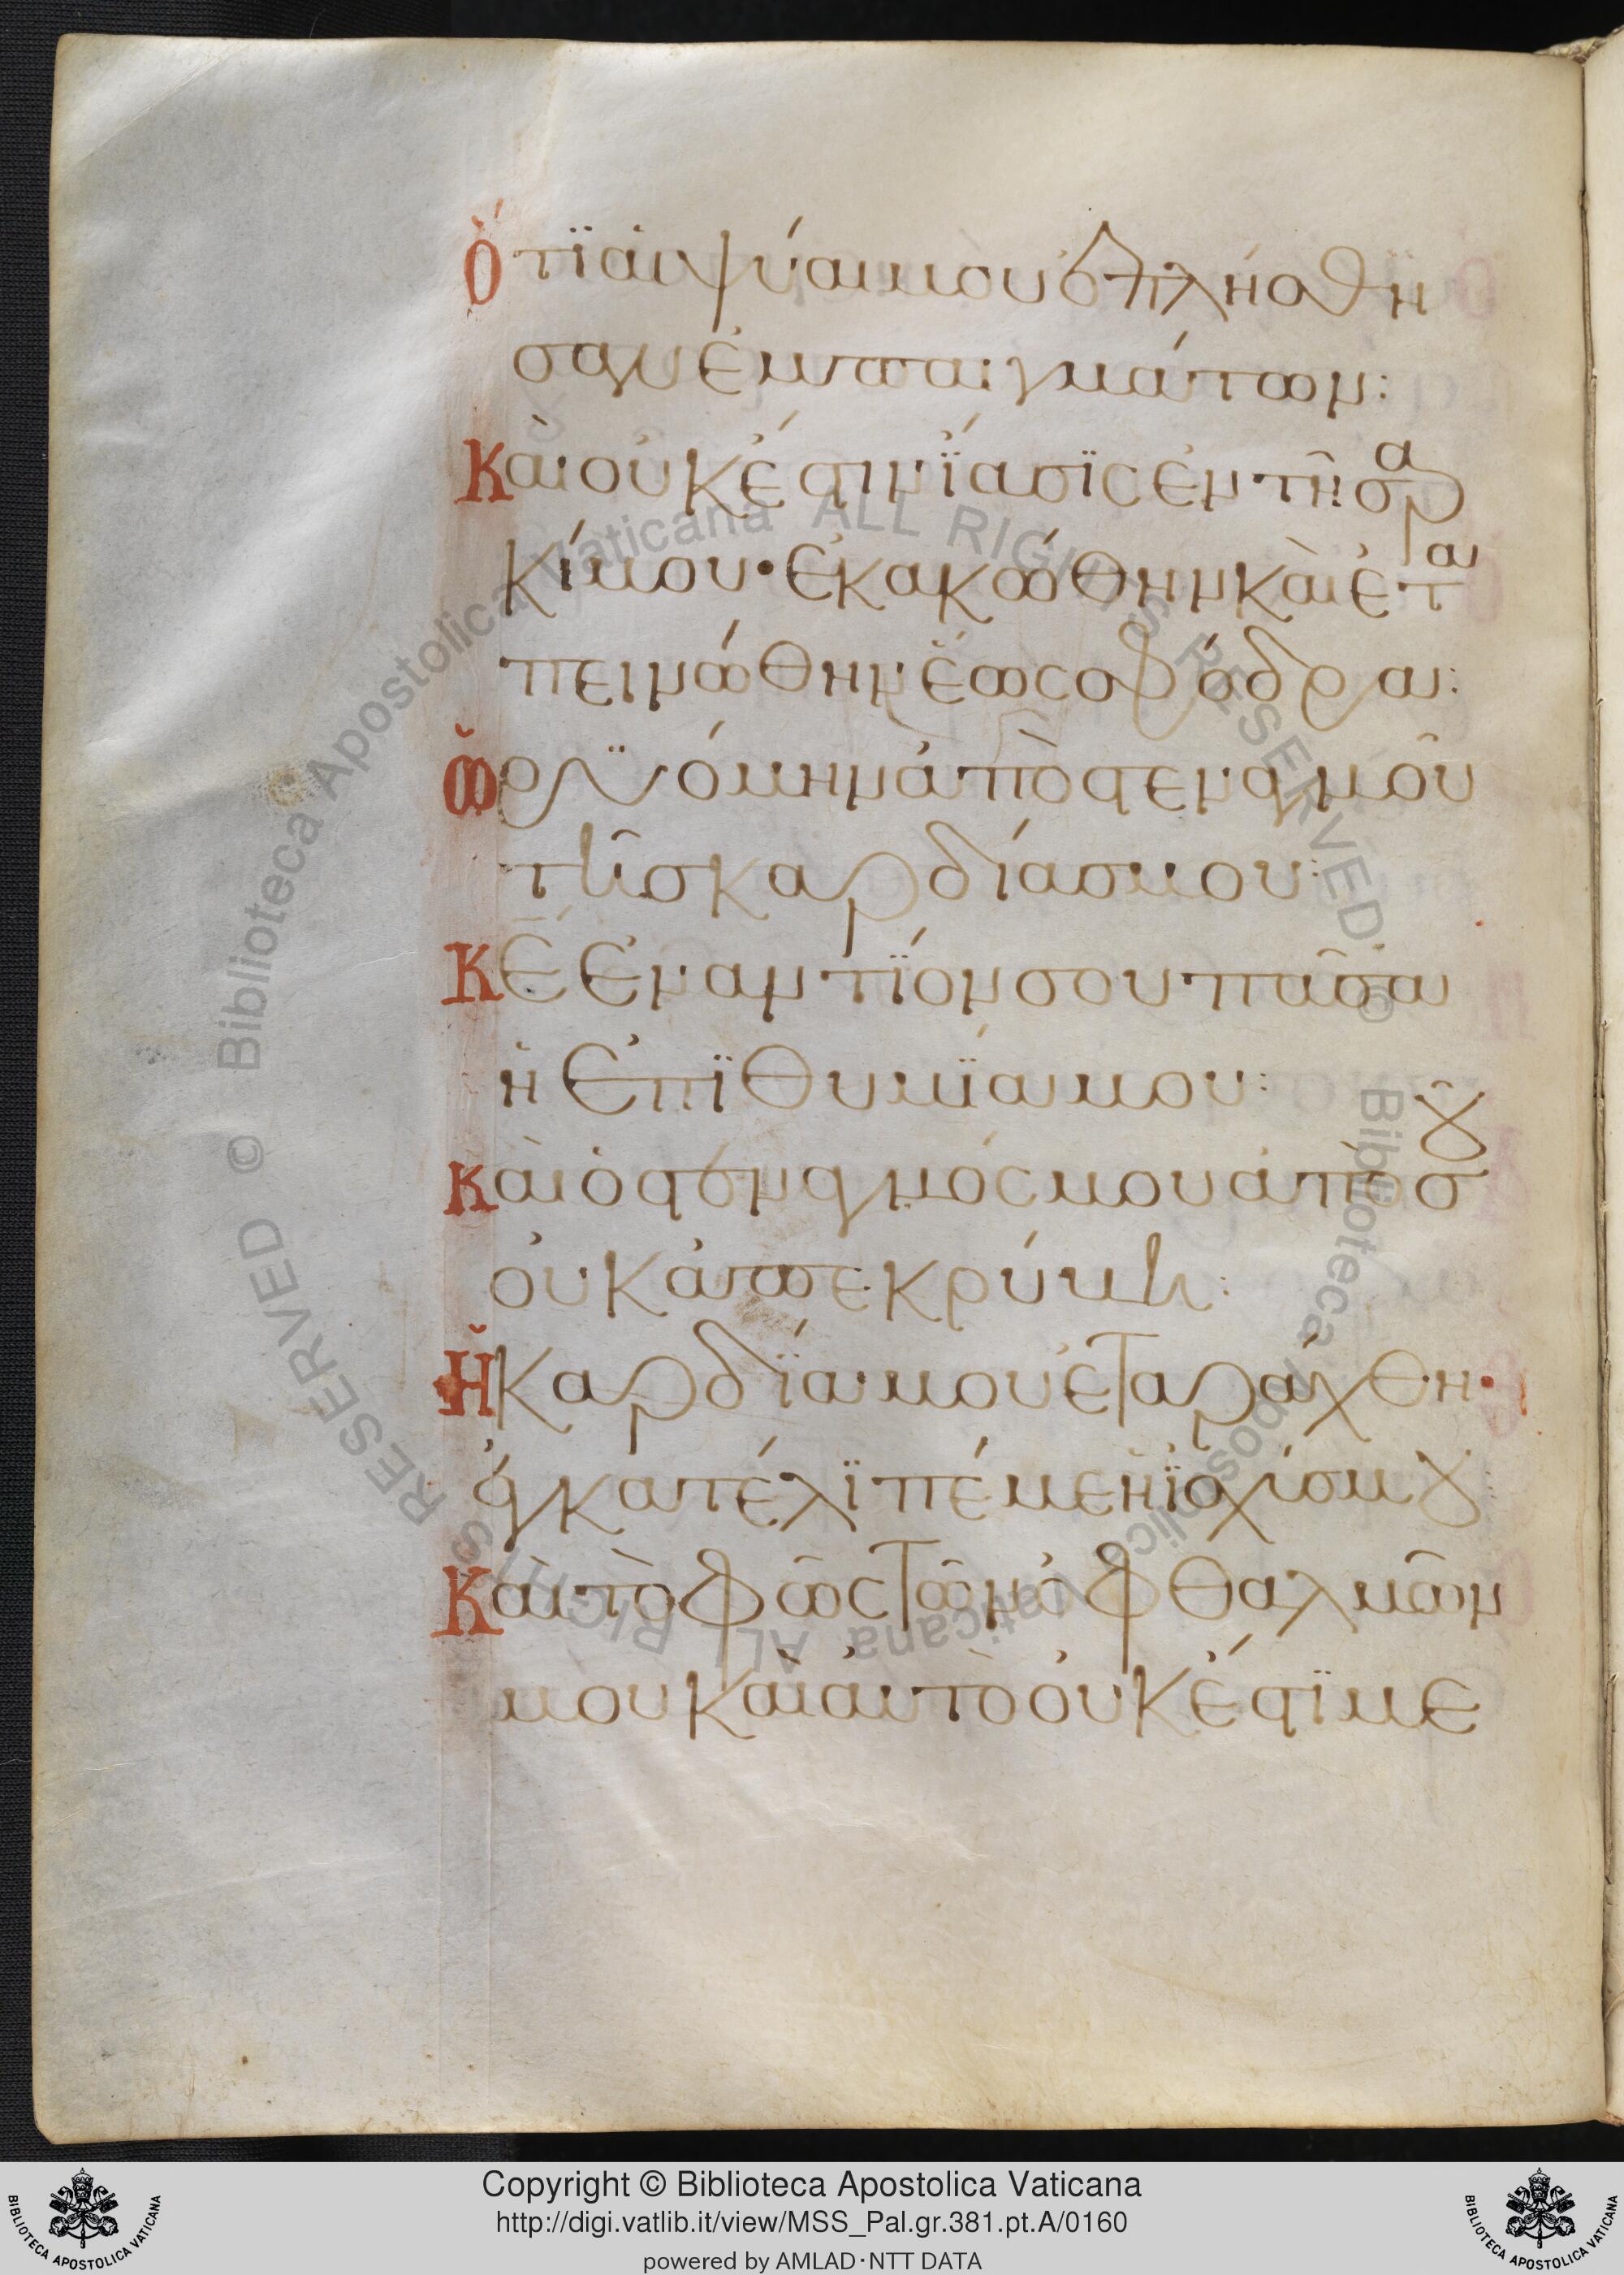 Ὅτϊ ἁι ψύαι μου ἐπλήσθη
σαν ἐμπαιγμάτων:
Καὶ οὐκ ἔστιν ΐασϊς ἐν τῆι σαρ
κί μου· ἐκακώθην καὶ ἐτα
πεινώθην ἕως σφόδρα:
Ὠρυόμην ἀπὸ στεναγμοῦ
τῆς καρδίας μου:
Κε ἐναντίον σου πᾶσα
ἡ ἐπϊθυμΐα μου:
Καὶ ὁ στεναγμός μου ἀπὸ σοῦ
οὐκ ἀπεκρύβη:
Ἡ καρδΐα μου ἐταράχθη·
ἐγκατέλϊπέ με ἡ ϊσχύς μου
Καὶ τὸ φῶς τῶν ὀφθαλμῶν
μου καὶ αὐτὸ οὐκ ἔστϊ με
© Biblioteca Apostolica Vaticana ALL RIGHTS RESERVED © Biblioteca Apostolica Vaticana ALL RIGHTS RESERVED
Copyright © Biblioteca Apostolica Vaticana
http://digi.vatlib.it/view/MSS_Pal.gr.381.pt.A/0160
powered by AMLAD·NTT DATA
BIBLIOTECA APOSTOLICA VATICANA
BIBLIOTECA APOSTOLICA VATICANA